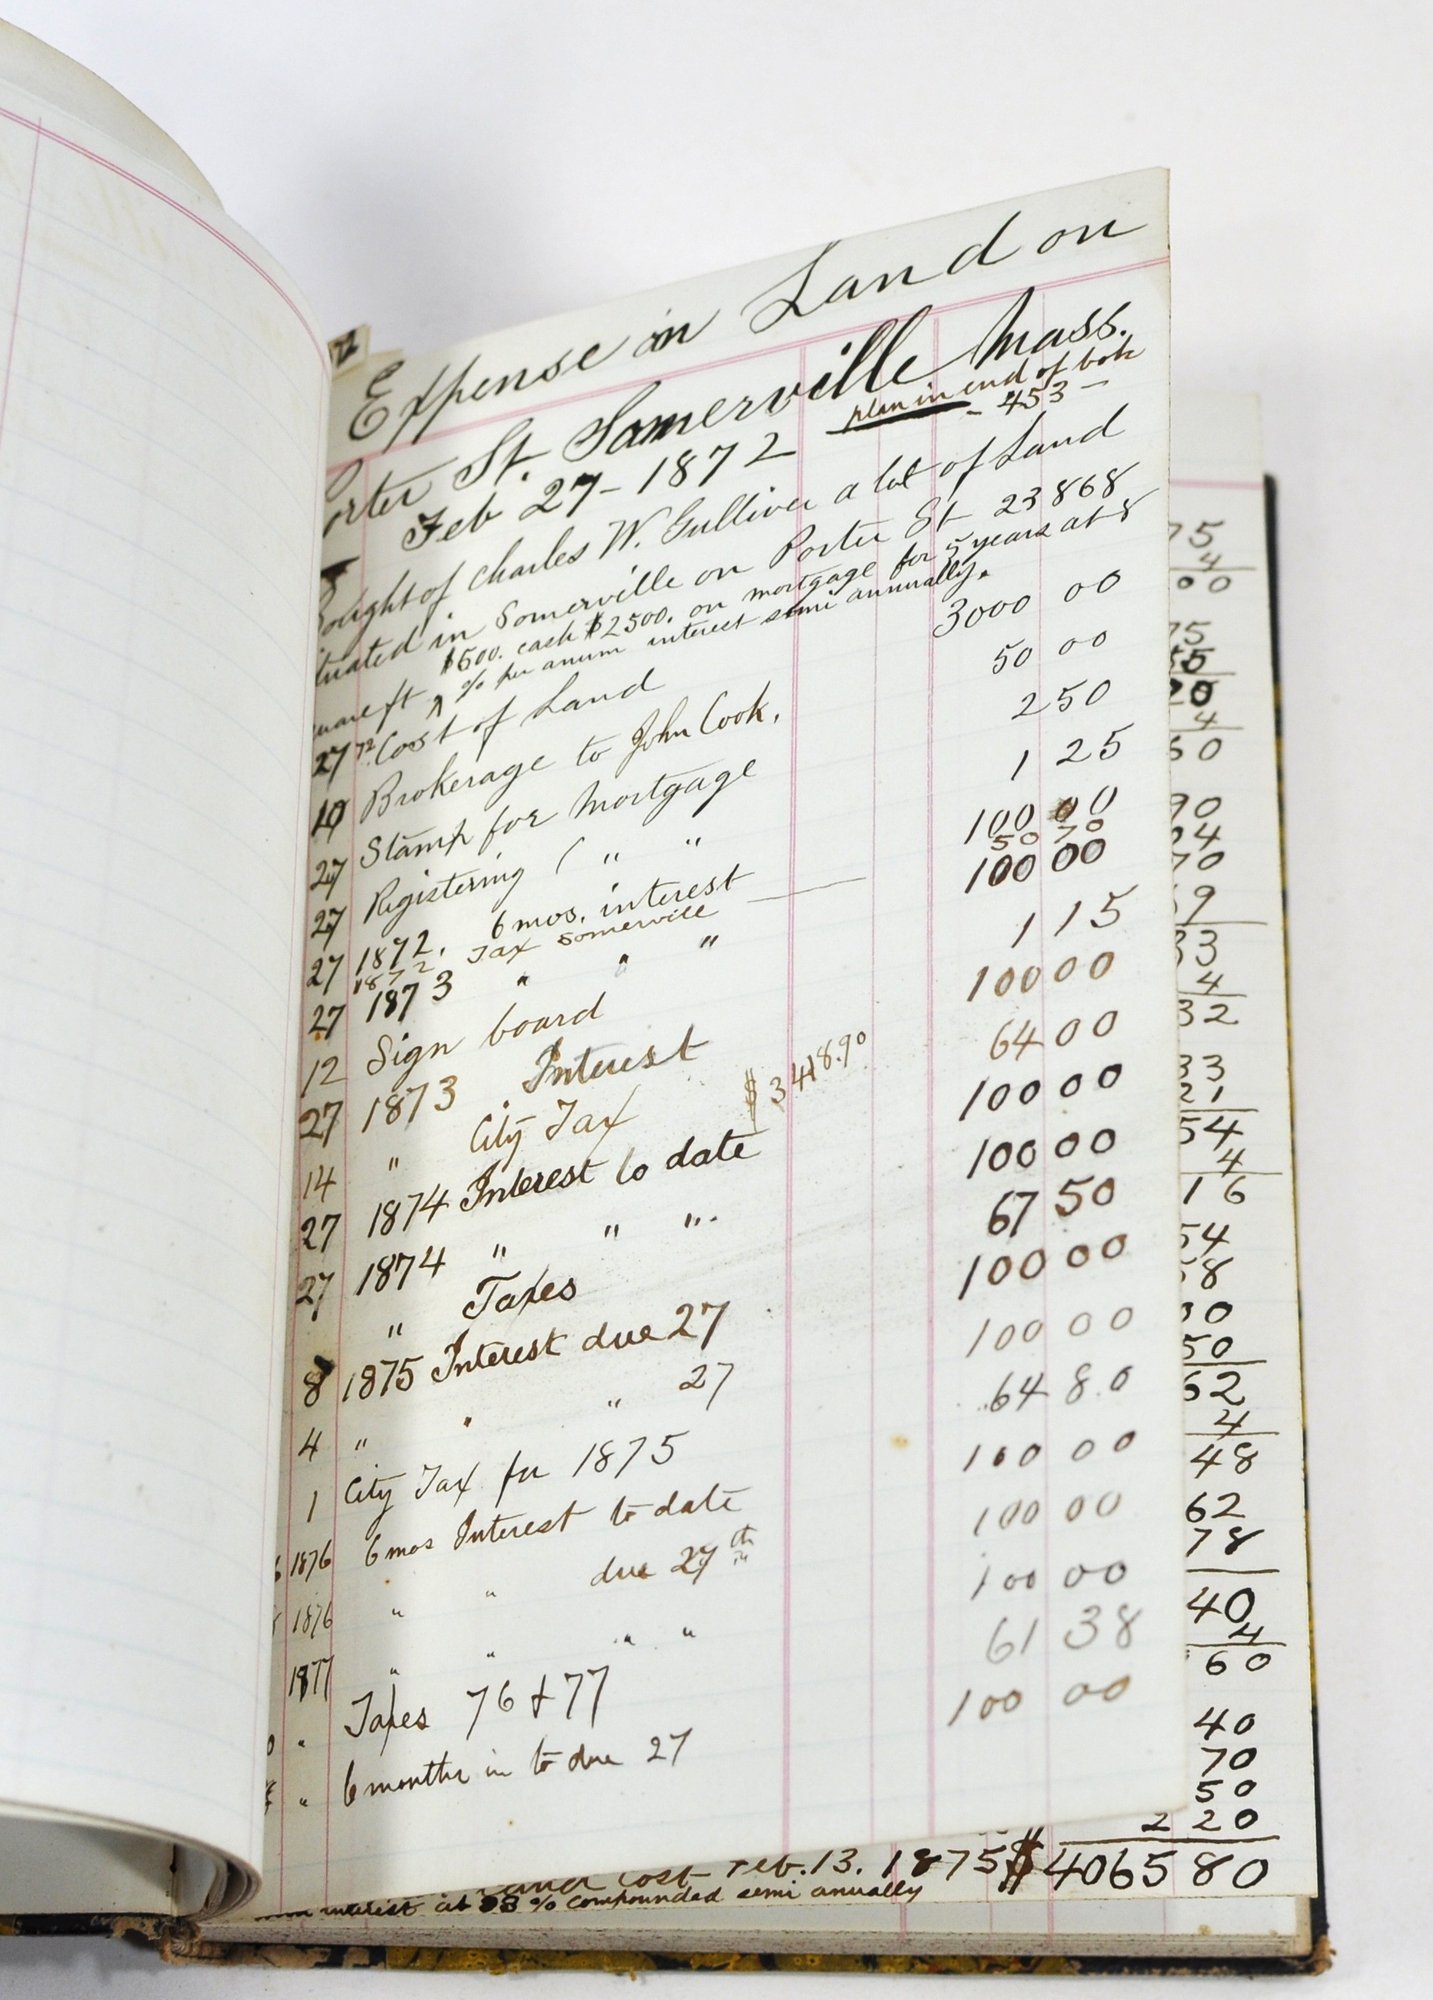 72
Expense in Land on
Porter St. Somerville Mass.
plan in end of book
- 453 -
Feb 27 - 1872
Bought of Charles W. Gulliver a lot of Land
situated in Somerville on Porter St 23868
square ft $500. cash $2500. on mortgage for 5 years at 8
% per anum interest semi annually.
27 72. Cost of Land 3000 00
10 Brokerage to John Cook. 50 00
27 Stamp for mortgage 2 50
27 Registering ( " " 1 25
27 1872. 6 mos. interest 100 00
1872 Tax Somerville 50 70
27 1873 " " " 100 00
12 Sign board 1 15
27 1873 Interest 100 00
14 " City Tax $3418.90 64 00
27 1874 Interest to date 100 00
27 1874 " " " 100 00
" Taxes 67 50
8 1875 Interest due 27 100 00
4 " " " 27 100 00
1 City Tax for 1875 64 80
1876 6 mos Interest to date 100 00
1876 " " due 27th 100 00
1877 " " " " 100 00
" Taxes 76 & 77 61 38
" 6 months in to due 27 100 00
75
4
00
75
20
4
60
90
70
33
4
32
33
21
54
4
16
54
50
62
4
48
62
78
40
4
60
40
70
50
2 20
Land Cost Feb. 13. 1875 $4065 80
interest at % compounded semi anually